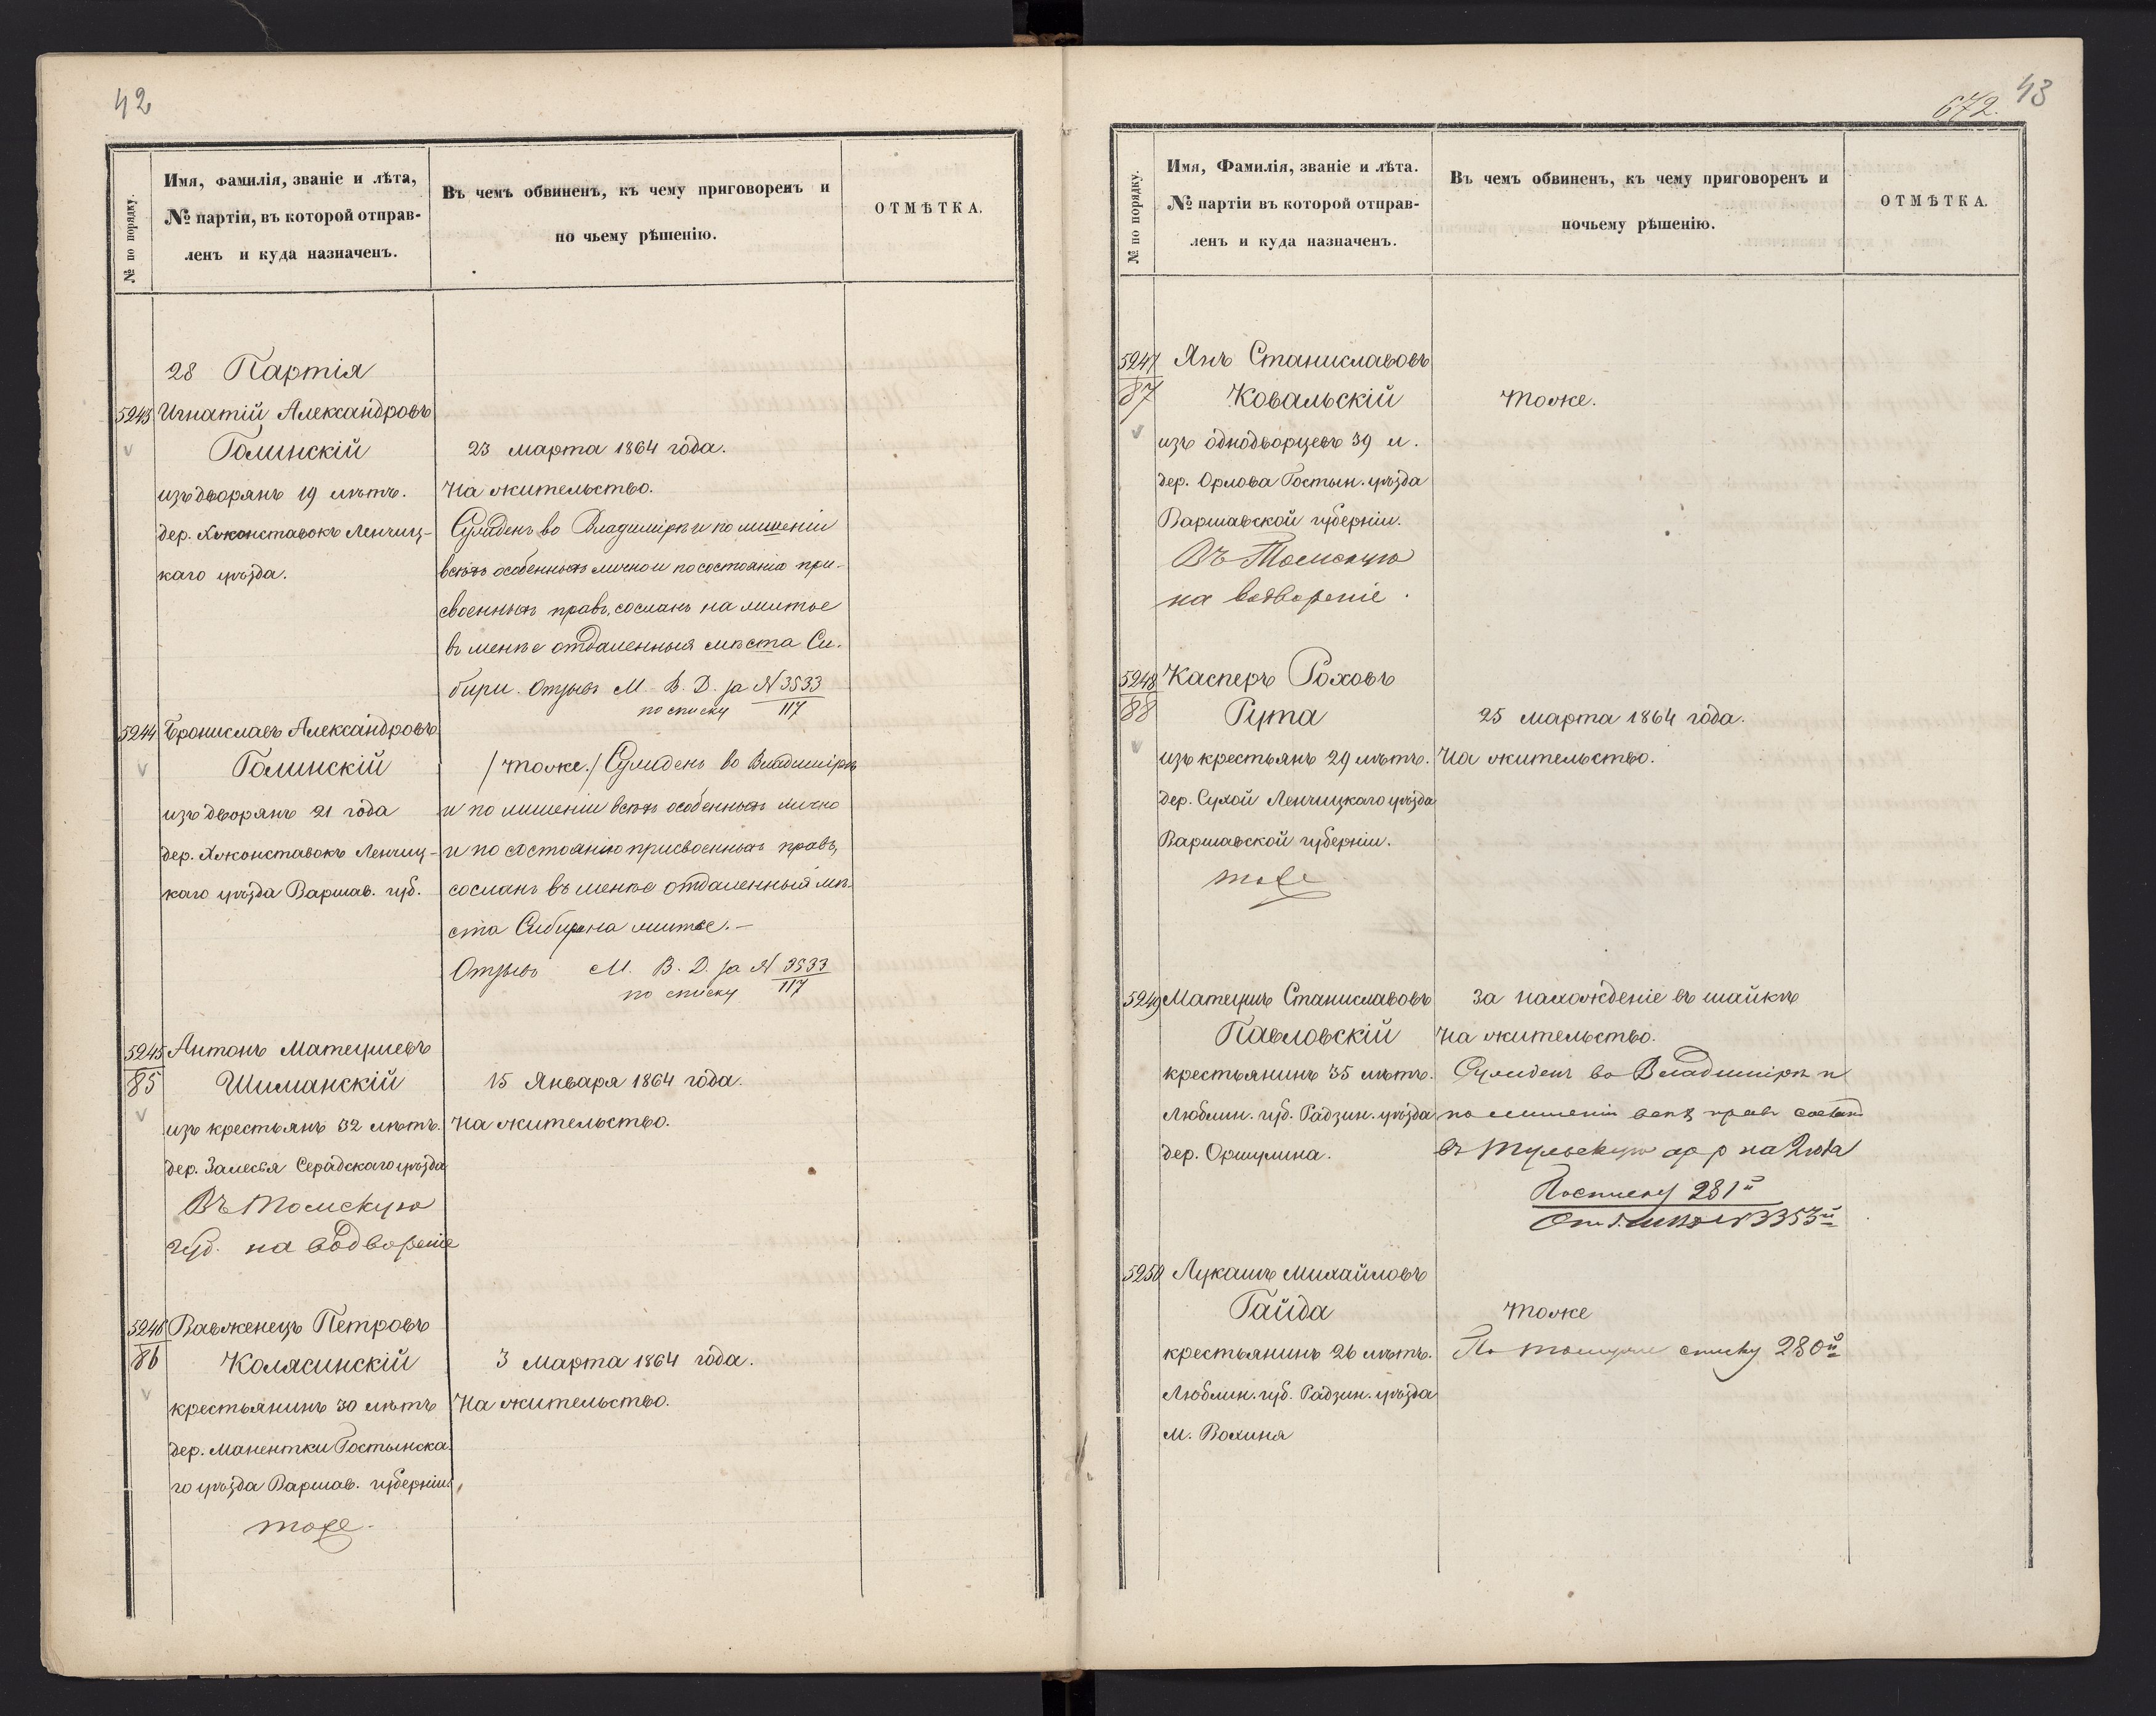 42
№ по порядку.
Имя, Фамилія, званіе и лѣта,
№ партіи, въ которой отправ-
ленъ и куда назначенъ.
Въ чемъ обвиненъ, къ чему приговоренъ и
по чьему рѣшенію.
ОТМѢТКА.
28 Партія
5243 Игнатій Александровъ
Голинскій
изъ дворянъ 19 лѣтъ.
дер. Ленчиц-
каго уѣзда.
23 марта 1864 года.
На жительство.
Сужденъ во Владимірѣ и по лишеніи
всѣхъ особенныхъ лично и по состоянію при-
своенныхъ правъ, сосланъ на житье
въ менѣе отдаленныя мѣста Си-
бири. Отзывъ М. В. Д. за № 3533
по списку 117
5244 Брониславъ Александровъ
Голинскій
изъ дворянъ 21 года
дер. Ленчиц-
каго уѣзда Варшав. губ.
/тоже./ Сужденъ во Владимірѣ
и по лишеніи всѣхъ особенныхъ лично
и по состоянію присвоенныхъ правъ,
сосланъ въ менѣе отдаленныя мѣ-
ста Сибири на житье.—
Отзывъ М. В. Д. за № 3533
по списку 117
5245 Антонъ Матеушевъ
85 Шиманскій
изъ крестьянъ 32 лѣтъ.
дер. Залесья Серадскаго уѣзда
Въ Томскую
губ. на водвореніе
15 Января 1864 года.
На жительство.
5246 Вавженецъ Петровъ
86 Колясинскій
крестьянинъ 30 лѣтъ
дер. Манентки Гостынска-
го уѣзда Варшав. губерніи.
тоже.
3 марта 1864 года.
На жительство.
43
672.
№ по порядку.
Имя, Фамилія, званіе и лѣта.
№ партіи въ которой отправ-
ленъ и куда назначенъ.
Въ чемъ обвиненъ, къ чему приговоренъ и
почьему рѣшенію.
ОТМѢТКА.
5247 Янъ Станиславовъ
87 Ковальскій
изъ однодворцевъ 39 л.
дер. Орлова Гостын. уѣзда
Варшавской губерніи.
Въ Томскую
на водвореніе.
тоже.
5248 Касперъ Роховъ
88 Рута
изъ крестьянъ 29 лѣтъ.
дер. Сухой Ленчицкаго уѣзда
Варшавской губерніи.
тоже
25 марта 1864 года.
На жительство.
5249 Матеушъ Станиславовъ
Павловскій
крестьянинъ 35 лѣтъ.
Люблин. губ. Радзин. уѣзда
дер. Оршулина.
За нахожденіе въ шайкѣ
На жительство.
Сужденъ во Владимірѣ и
по лишеніи всѣхъ правъ сосланъ
въ Тульскую на 2 года
По списку 281й
№ 3353й
5250 Лукашъ Михайловъ
Гайда
крестьянинъ 26 лѣтъ.
Люблин. губ. Радзин. уѣзда
М. Вохиня
тоже
По тому же списку 280й